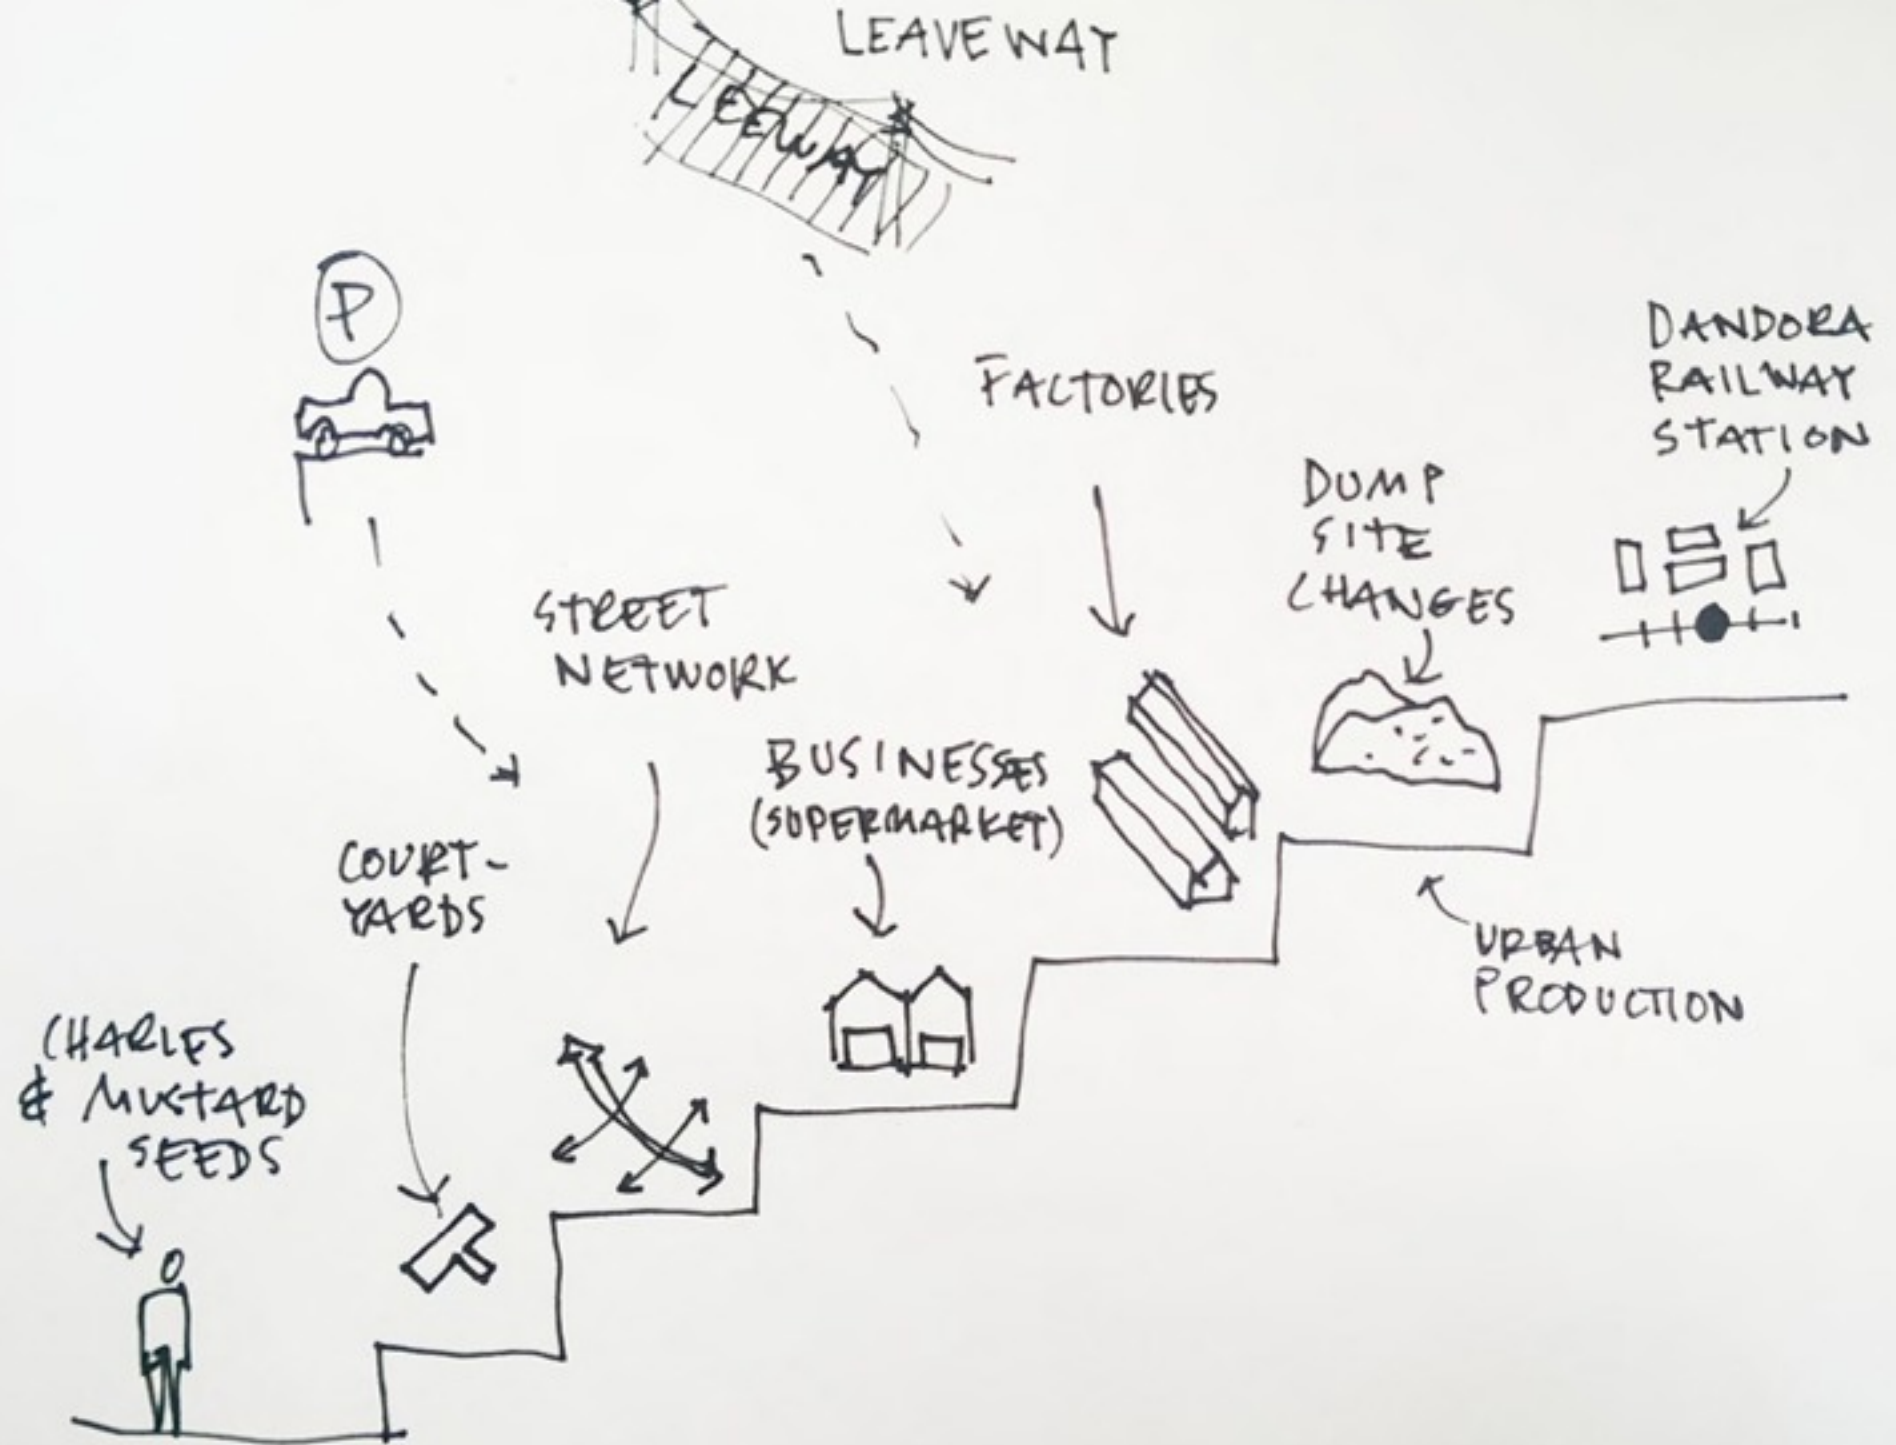 LEAVEWAY
LEEWAY
P
FACTORIES
DANDORA
RAILWAY
STATION
DUMP
SITE
CHANGES
STREET
NETWORK
BUSINESSES
(SUPERMARKET)
COURT-
YARDS
URBAN
PRODUCTION
CHARLES
& MUSTARD
SEEDS